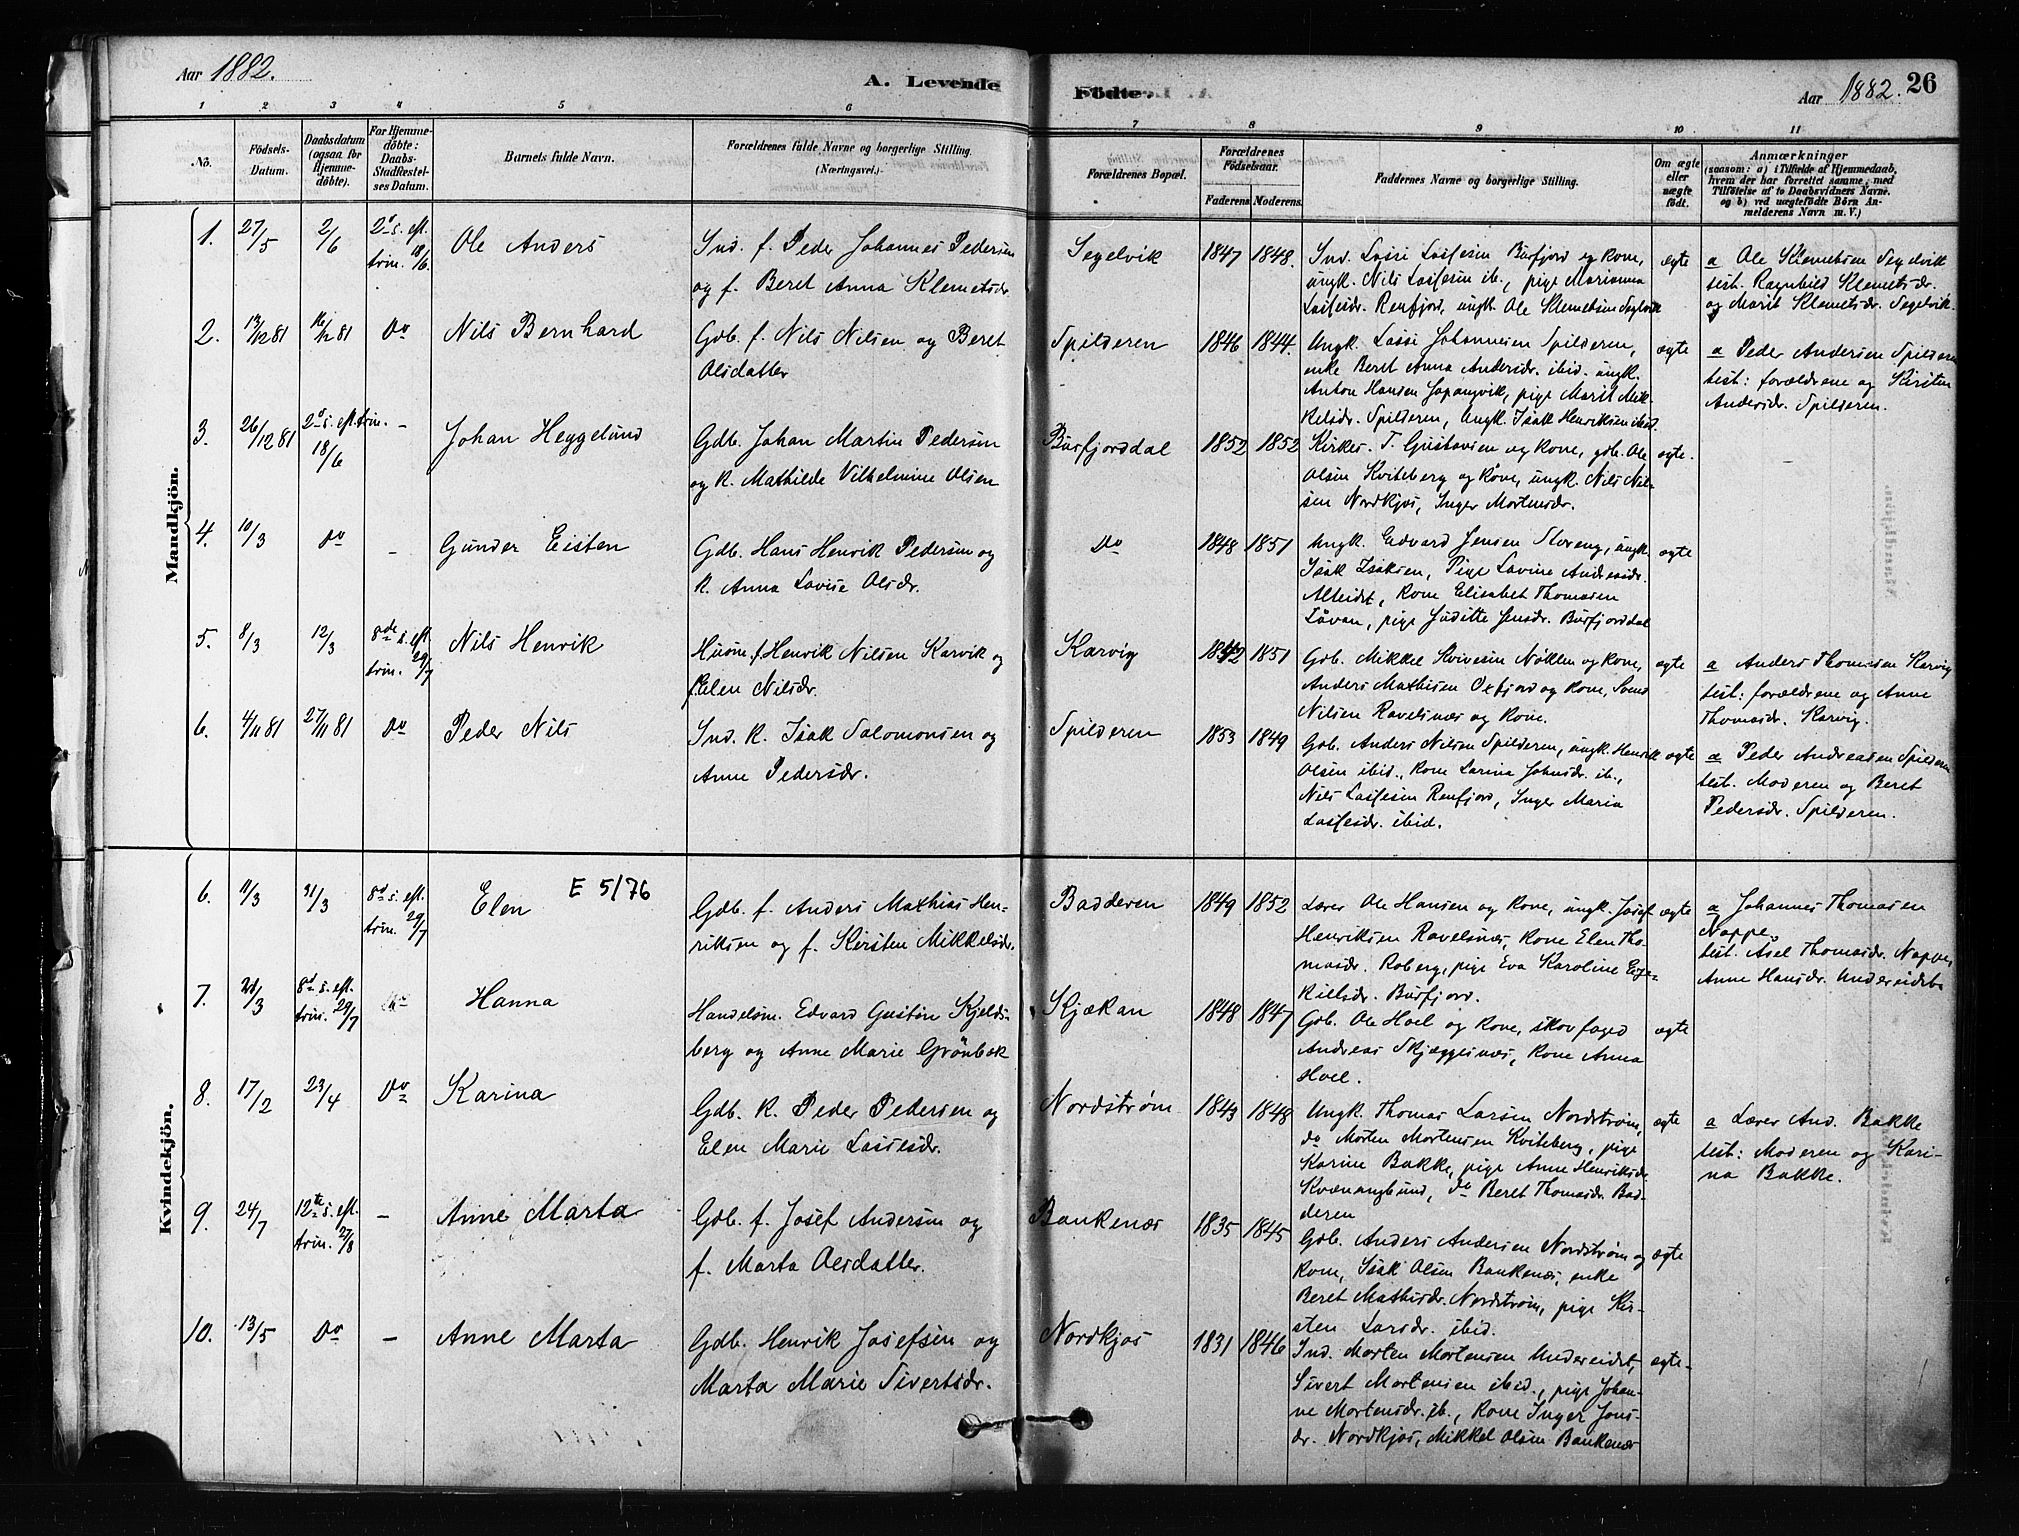 Aar 1882.
A. Levende Födte.
Aar 1882. 26
1 2 3 4 5 6 7 8 9 10 11
No.
Födsels-
Datum.
Daabsdatum
(ogsaa for
Hjemme-
döbte).
For Hjemme-
döbte:
Daabs-
Stadfæstel-
ses Datum.
Barnets fulde Navn.
Forældrenes fulde Navne og borgerlige Stilling.
(Næringsvei.)
Forældrenes Bopæl.
Forældrenes
Födselsaar.
Faderens. Moderens.
Faddernes Navne og borgerlige Stilling.
Om ægte
eller
uægte
födt.
Anmærkninger
(saasom: a) i Tilfælde af Hjemmedaab,
hvem der har forrettet samme, med
Tilföielse af to Daabsvidners Navne.
og b) ved uægtefödte Börn An-
melderens Navn m. V.)
Mandkjön.
1. 27/5 2/6 2d s. eft.
trin. 18/6.
Ole Anders
Ind. f. Peder Johannes Pedersen
og f. Beret Anna Klemetsdr.
Segelvik 1847 1848.
Ind. Lasse Lassesen Burfjord og Kone,
ungk. Nils Lassesen ib., pige Marianna
Lassesdr. Renfjord, ungk. Ole Klemetsen Seglvik
ægte
a Ole Klemetsen Segelvik
test. Ragnhild Klemetsdr.
og Marit Klemetsdr. Segelvik.
2. 13/12 81 16/12 81 Do
Nils Bernhard
Gdb. f. Nils Nilsen og Beret
Olsdatter
Spilderen 1846 1844.
Ungk. Lassi Johannesen Spilderen,
enke Beret Anna Andersdr. ibid. ungk.
Anton Hansen Jøpangvik, pige Marit Mik-
kelsdr. Spilderen, Ungk. Isak Henriksen ibid.
ægte
a Peder Andersen Spilderen
test: forældrene og Kirsten
Andersdr. Spilderen.
3. 26/12 81 2d s. eft. trin.
18/6 -
Johan Heggelund
Gdb. Johan Martin Pedersen
og K. Mathilde Vilhelmine Olsen
Burfjorddal 1852 1852
Kirkes. T. Gustavsen og Kone, gdb. Ole
Olsen Kviteberg og Kone, ungk. Nils Nil-
sen Nordkjos, Inger Mortensdr.
ægte. -
4. 10/3 Do -
Gunder Eisten
Gdb. Hans Henrik Pedersen og
K. Anna Lovise Olsdr.
Do 1848 1851
Ungk. Edvard Jensen Storeng, ungk.
Isak Isaksen, Pige Lavine Andreasdr.
Alteidet, Kone Elisabet Thomasen
Løvan, pige Juditte Jensdr. Burfjorddal
ægte
5. 8/3 12/3 8de s. eft.
trin. 29/7
Nils Henrik
Husm. f. Henrik Nilsen Karvik og
f. Elen Nilsdr.
Karvig 1842 1851
Gdb. Mikkel Nøklen og Kone,
Anders Mathisen Oxfjord og Kone, Svend
Nilsen Ravelsnæs og Kone.
ægte
a Anders Thomasen Karvig
test: forældrene og Anne
Thomasdr. Karvig.
6. 4/11 81 27/11 81 Do
Peder Nils
Ind. K. Isak Salomonsen og
Anne Pedersdr.
Spilderen 1853 1849
Gdb. Anders Nilsen Spilderen, ungk. Henrik
Olsen ibid., Kone Larina Johnsdr. ib.,
Nils Lassesen Renfjord, Inger Maria
Lassesdr. ibid.
ægte
a Peder Andreasen Spilderen
test. Moderen og Beret
Pedersdr. Spilderen.
Kvindekjön.
6. 11/3 31/3 8d s. eft.
trin. 29/7
Elen E 5/76
Gdb. f. Anders Mathias Hen-
riksen og f. Kirsten Mikkelsdr.
Badderen 1849 1852
Lærer Ole Hansen og Kone, ungk. Josef
Henriksen Ravelsnæs, Kone Elen Tho-
masdr. Roberg, pige Eva Karoline Eze-
kielsdr. Burfjord.
ægte
a Johannes Thomasen
Noppe,
test. Axel Thomasdr. Noppe,
Anne Hansdr. Undereidet.
7. 21/3 8d s. eft.
trin. 29/7
Hanna
Handelsm. Edvard Gustav Kjelds-
berg og Anne Marie Grönbæk
Kjækan 1848 1847
Gdb. Ole Hoel og Kone, skovfoged
Andreas Skjæggesnæs, Kone Anna
Hoel.
ægte
8. 17/2 23/4 Do
Karina
Gdb. K. Peder Pedersen og
Elen Marie Lassesdr.
Nordstrøm 1843 1848
Ungk. Thomas Larsen Nordstrøm,
do Morten Mortensen Kviteberg, pige
Karine Bakke, pige Anne Henriksdr.
Kvænangbund, do Beret Thomasdr. Bad-
deren
ægte
a Lærer And. Bakke
test: Moderen og Kari-
na Bakke.
9. 24/7 12te s. eft.
trin. 27/8 -
Anne Marta
Gdb. f. Josef Andersen og
f. Marta Olsdatter.
Bankenæs 1835 1845
Gdb. Anders Andersen Nordstrøm og
Kone, Isak Olsen Bankenæs, enke
Beret Mathisdr. Nordstrøm, pige Kir-
sten Larsdr. ibid.
ægte
10. 13/5 Do -
Anne Marta
Gdb. Henrik Josefsen og
Marta Marie Sivertsdr.
Nordkjos 1831 1846
Ind. Morten Mortensen Undereidet,
Sivert Mortensen ibid., pige Johan-
ne Mortensdr. ib., Kone Inger Jons-
dr. Nordkjos, Mikkel Olsen Bankenæs
ægte